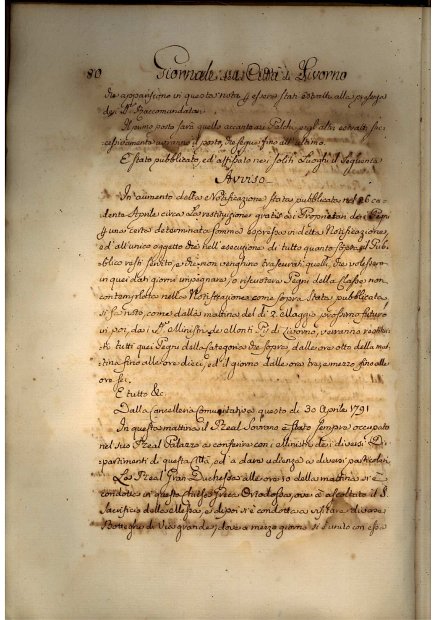 80 Giornale della Città di Livorno
che appariscono in questa nota p essere stati estratti alla presenza
dei SS.ri Raccomandatari.
Il primo posto sarà quello accanto ai Palchi, e gli altri estratti suc-
cessivamente avranno il posto, che segue fino all'ultimo.
È stato pubblicato, ed affissato nei soliti Luoghi il seguente
Avviso
In aumento della Notificazione stata pubblicata nel 26 ca-
dente Aprile circa la restituzione gratis ai Proprietari dei Pegni
p una certa determinata somma espressa in detta Notificazione,
ed all'unico oggetto che nell'esecuzione di tutto quanto sopra il Pub-
blico resti servito, e che non venghino trascurati quelli, che volessero
in quei dati giorni impegnare, o riscuotere Pegni della Classe non
contemplata nella Notificazione come sopra stata pubblicata,
si fa noto, come dalla mattina del dì 2 Maggio prossimo futuro
in poi, dai SS. Ministri dei Monti Pii di Livorno, verranno restitui-
ti tutti quei Pegni della Categoria che sopra, dalle ore otto della mat-
tina fino alle ore dieci, ed il giorno dalle ore tre, e mezzo fino alle
ore sei.
E tutto &c.
Dalla Cancelleria Comunitativa questo dì 30 Aprile 1791
In questa mattina il Real Sovrano è stato sempre occupato
nel suo Real Palazzo a conferire con i Ministri dei diversi Di-
partimenti di questa Città, ed a dare udienza a diversi particolari.
La Real Gran Duchessa alle ore 10 della mattina si è
condotta in questa Chiesa Greca Ortodossa, ove à ascoltato il S.
Sacrifizio della Messa, e dipoi si è condotta a visitare diverse
Botteghe di Via grande, dove a mezzo giorno si è unito con essa